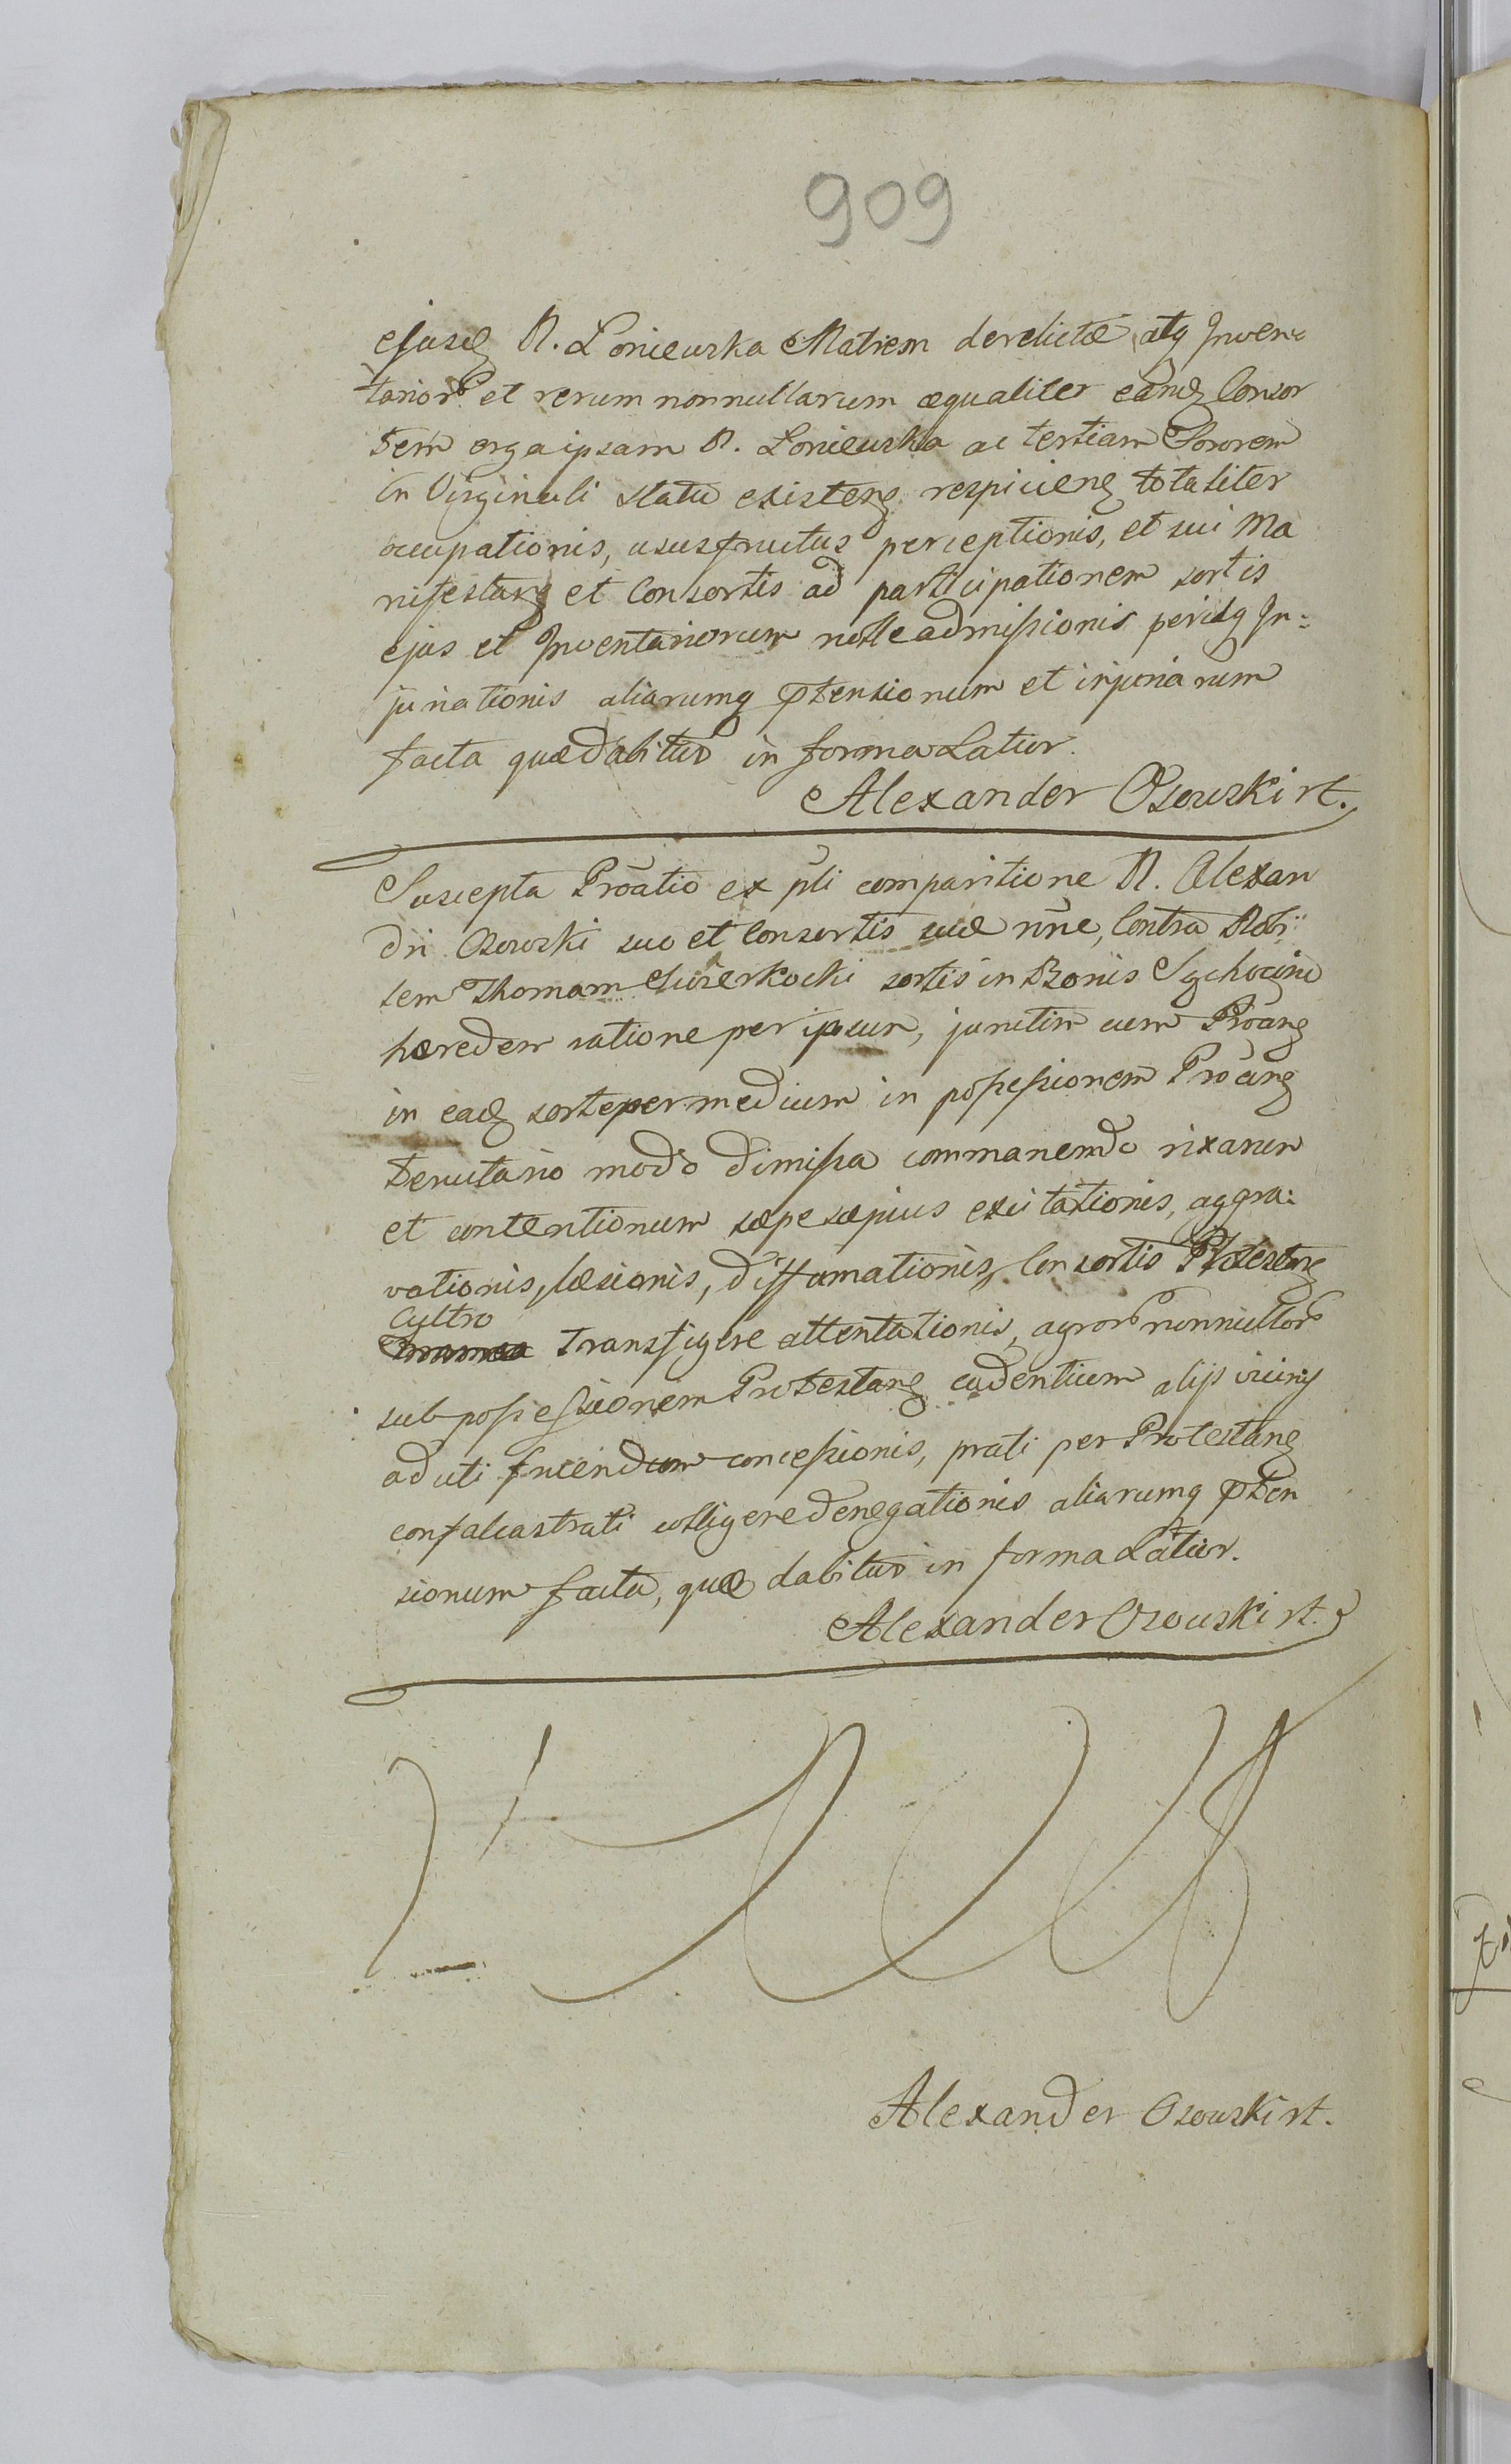 909
ejusd N. Łoniewska Matrem derelictæ, atq Inven-
tarior et rerum nonnullarum æqualiter eand Consor
tem erga ipsam N. Łoniewska ac tertiam Sororem
in Virginali statu existen respicien totaliter
occupationis, ususfructus perceptionis, et sui Ma
nifestan et Consortis ad participationem sortis
ejus et Inventariorum nolle admissionis peridq In-
juriationis aliarumq ptensionum et injuriarum
facta quæ dabitur in forma Latior.
Alexander Osowski rt.
Suscepta Proatio ex pli comparitione N. Alexan
dri Osowski suo et Consortis suæ nne, Contra Nobi
lem Thomam Swierkocki sortis in Bonis Sychocin
hæredem ratione per ipsum, junctim cum Proan
in ead sorte per medium in possessionem Proan
tenutario modo dimissa commanendo rixarum
et contentionum sæpe sæpius excitationis, aggra:
vationis, læsionis, diffamationis, Consortis Protestan
Cultro
transfigere attentationis, agror nonnullor
sub possessionem Protestan cadentium alijs vicinis
ad uti fruendum concessionis, prati per Protestan
confalcastrati colligere denegationis aliarumq pten
sionum facta, quæ dabitur in forma Latior.
Alexander Osowski rt.
Alexander Osowski rt.